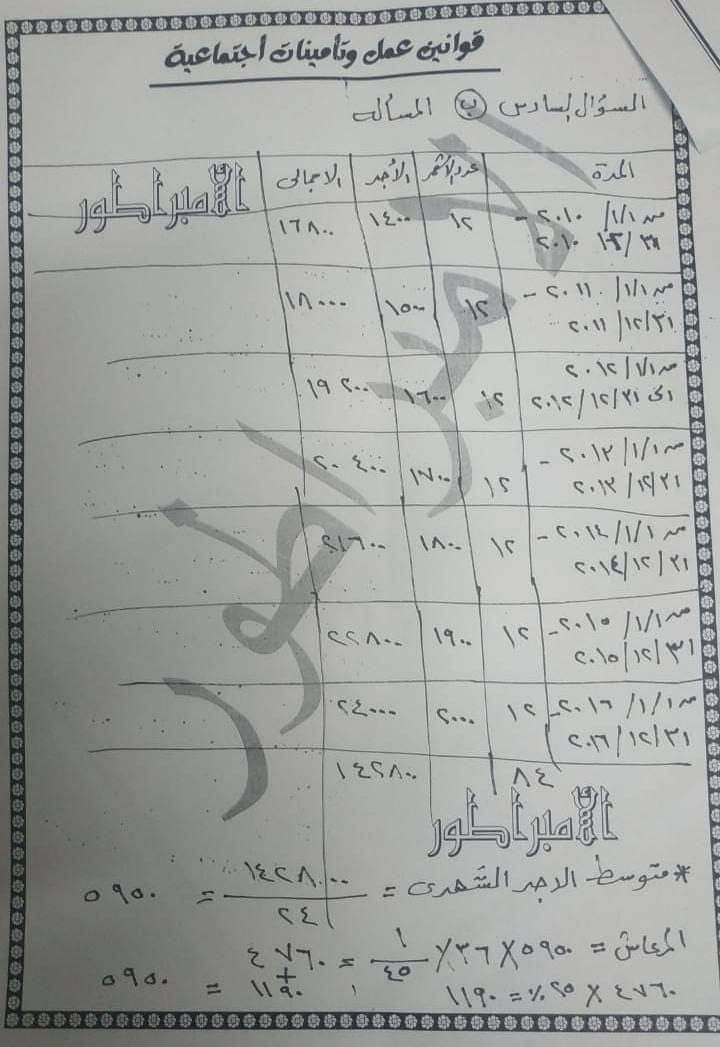 قوانين عمل وتأمينات أجتماعية
السؤال السادس (ب) المسأله
المدة عدد الأشهر الأجر الاجمالى
الأمبراطور
من ١/١/ ٢٠١٠ - ١٢ ١٤٠٠ ١٦٨٠٠
٢٠١٠
من ١/١/ ٢٠١١ - ١٢ ١٥٠٠ ١٨٠٠٠
٣١/١٢/ ٢٠١١
من ١/١/ ٢٠١٢ ١٢ ١٦٠٠ ١٩٢٠٠
الى ٣١/ ١٢/ ٢٠١٢
من ١/١/ ٢٠١٣ - ١٢ ١٧٠٠ ٢٠٤٠٠
٣١/١٢/ ٢٠١٣
من ١/١/ ٢٠١٤ - ١٢ ١٨٠٠ ٢١٦٠٠
٣١/١٢/ ٢٠١٤
من ١/١/ ٢٠١٥ - ١٢ ١٩٠٠ ٢٢٨٠٠
٣١/١٢/ ٢٠١٥
من ١/١/ ٢٠١٦ - ١٢ ٢٠٠٠ ٢٤٠٠٠
٣١/١٢/ ٢٠١٦
٨٤ ١٤٢٨٠٠
الأمبراطور
الأمبراطور
* متوسط الاجر الشهرى = ١٤٢٨٠٠ / ٢٤ = ٥٩٥٠
المعاش = ٥٩٥٠ × ٣٦ × ١ / ٤٥ = ٤٧٦٠
+
٤٧٦٠ × ٢٥ ٪ = ١١٩٠ ١١٩٠ = ٥٩٥٠